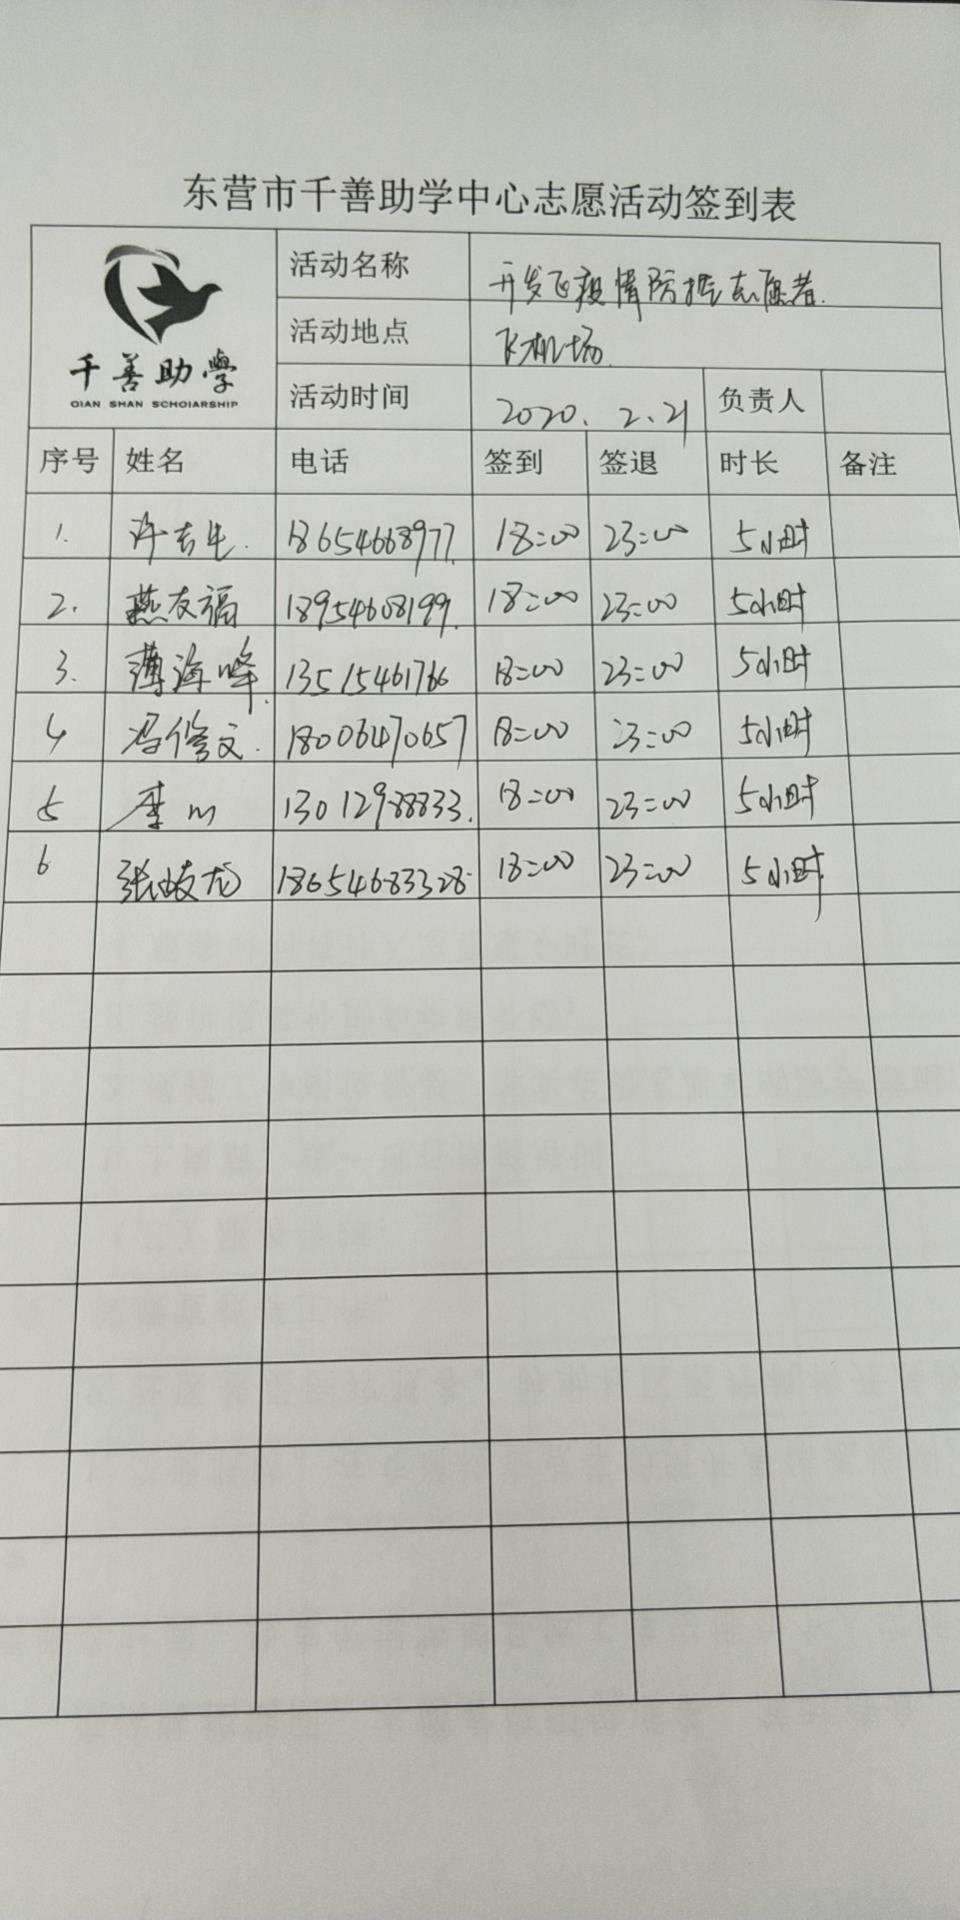 东营市千善助学中心志愿活动签到表
千善助學
QIAN SHAN SCHOIARSHIP
活动名称 开发区疫情防控志愿者.
活动地点 飞机场.
活动时间 2020. 2. 21 负责人
序号 姓名 电话 签到 签退 时长 备注
1. 许吉生. 18654668977. 18:00 23:00 5小时
2. 燕友福 18954608199. 18:00 23:00 5小时
3. 薄海峰. 13515461766 18:00 23:00 5小时
4 冯修文. 18006470657 18:00 23:00 5小时
5 李 13012988833. 18:00 23:00 5小时
6 张岐龙 18654683328. 18:00 23:00 5小时